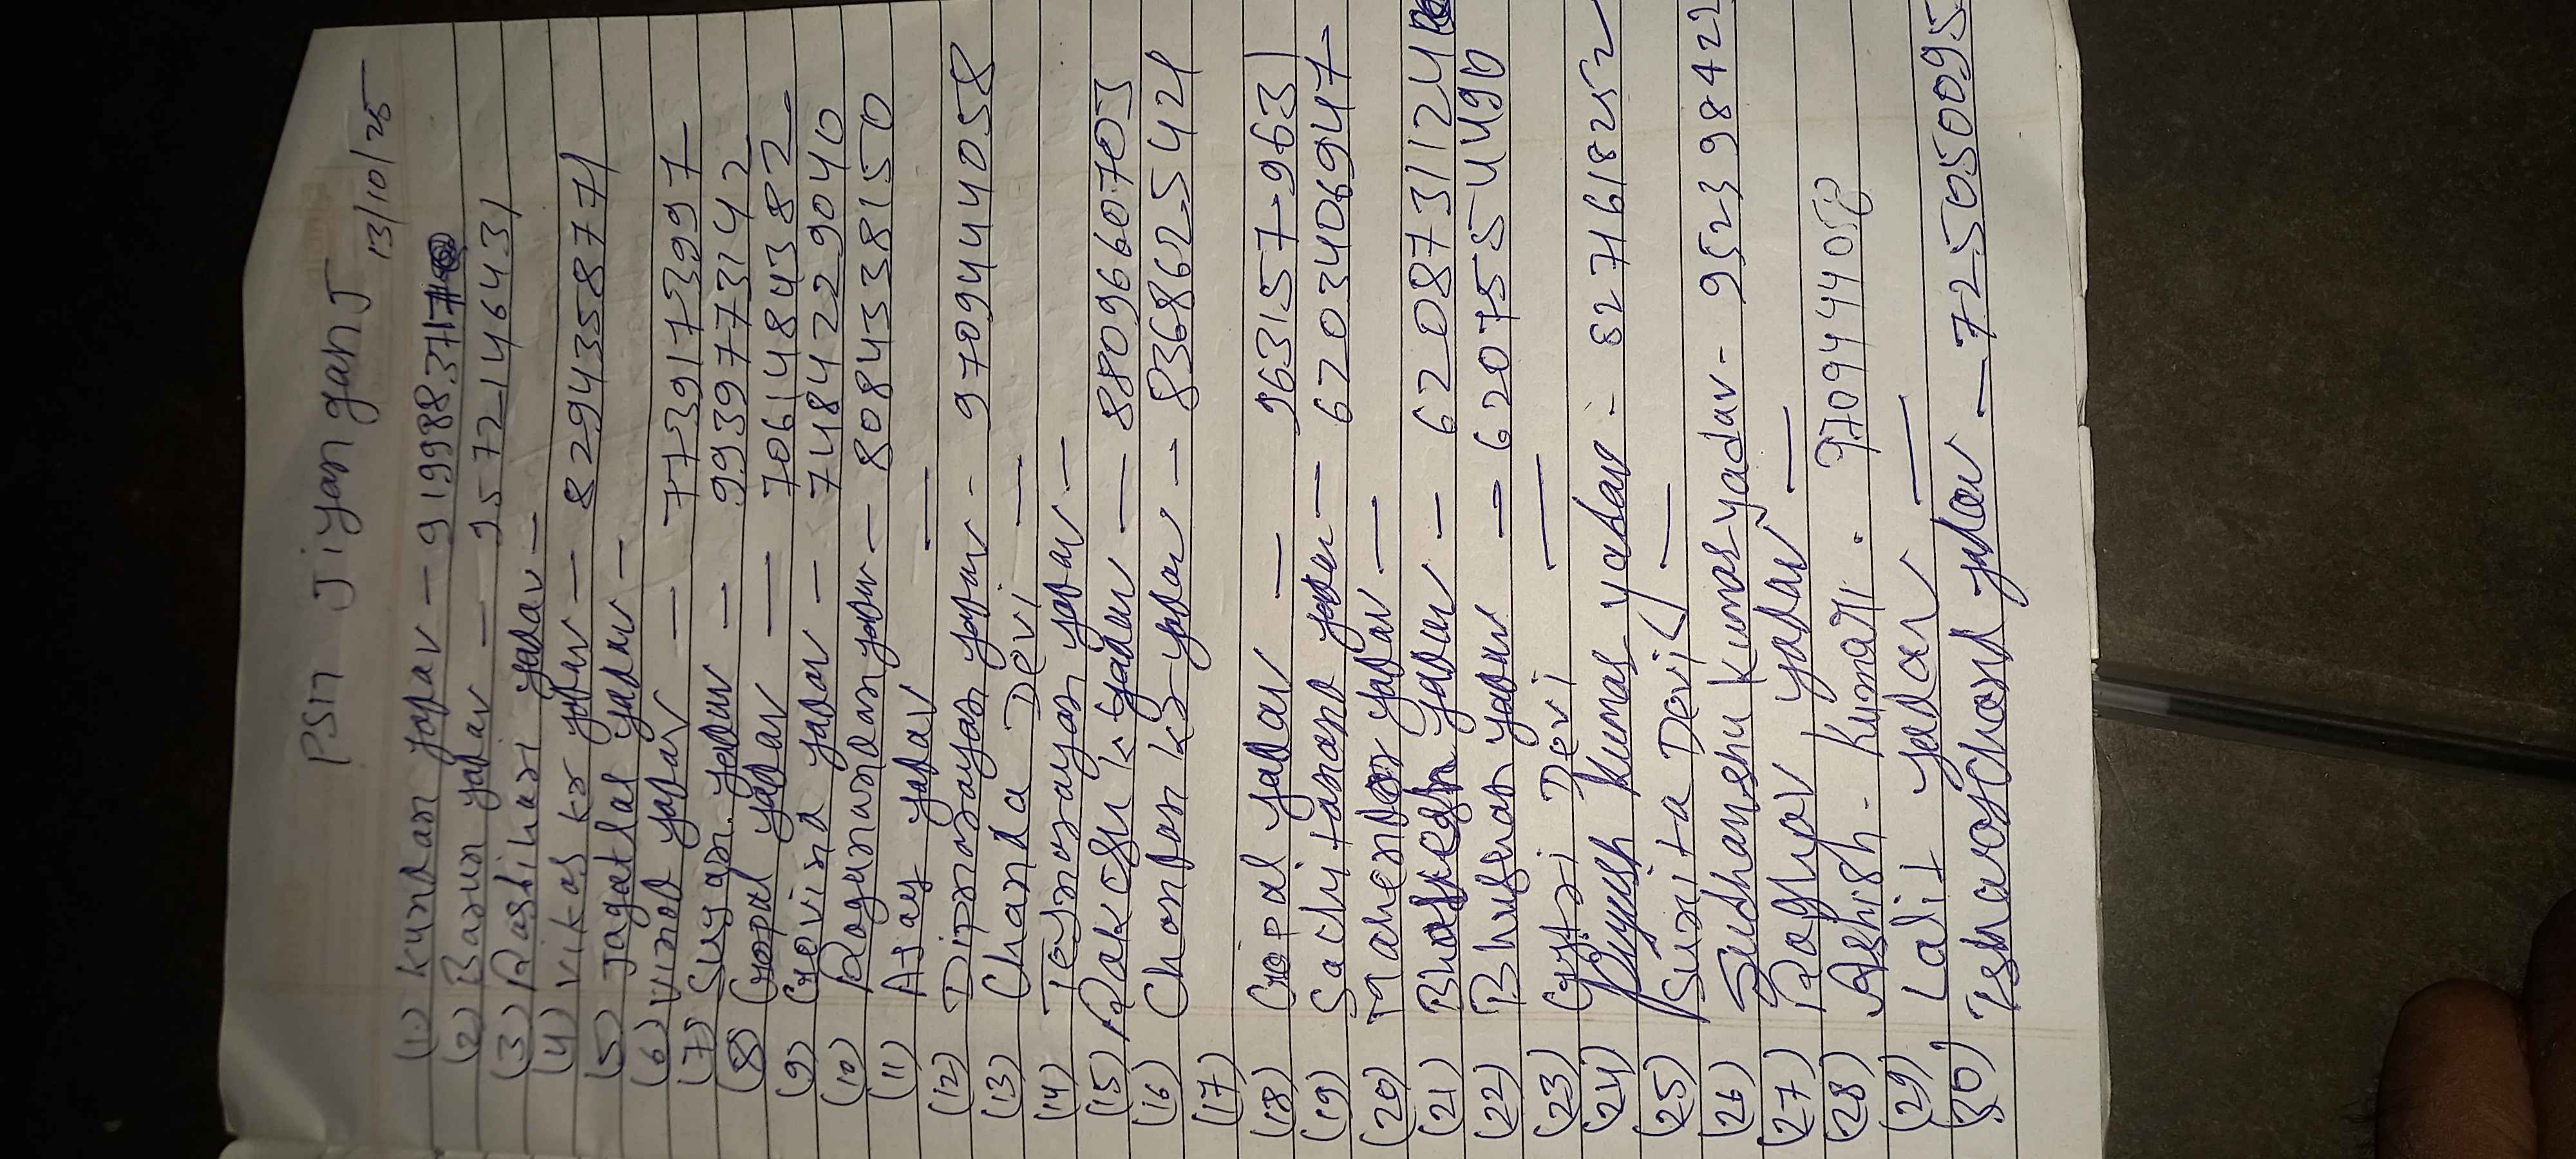 PSM Jiyanganj
13/10/25
(1) Kundan yadav - 919988.3717
(2) Barun yadav - 9572146431
(3) Rasbihari yadav -
(4) Vikas kr yadav - 8294358771
(5) Jagatlal yadav -
(6) Vinod yadav - 7739173997
(7) Sugan yadav - 9939773142
(8) Gopal yadav - 7061484382
(9) Govind yadav - 7484229040
(10) Ragunandan yadav - 8084338150
(11) Ajay yadav -
(12) Dipnarayan yadav - 9709444058
(13) Chanda Devi -
(14) Tejnarayan yadav -
(15) Rakesh kr yadav - 8809660703
(16) Chandan kr yadav - 8368625421
(17)
(18) Gopal yadav - 963157-9631
(19) Sachitanand yadav - 6203406947
(20) Mahendar yadav -
(21) yadav - 620873112
(22) Bhushan yadav - 6207554490
(23) Devi -
(24) Piyush Kumar Yadav - 8271618252
(25) Sunita Devi -
(26) Sudhanshu Kumar yadav - 952398422
(27) yadav -
(28) Ashish. Kumari. 9709444058
(29) Lalit yadav -
(30) Ishwarchand yadav - 7250500095